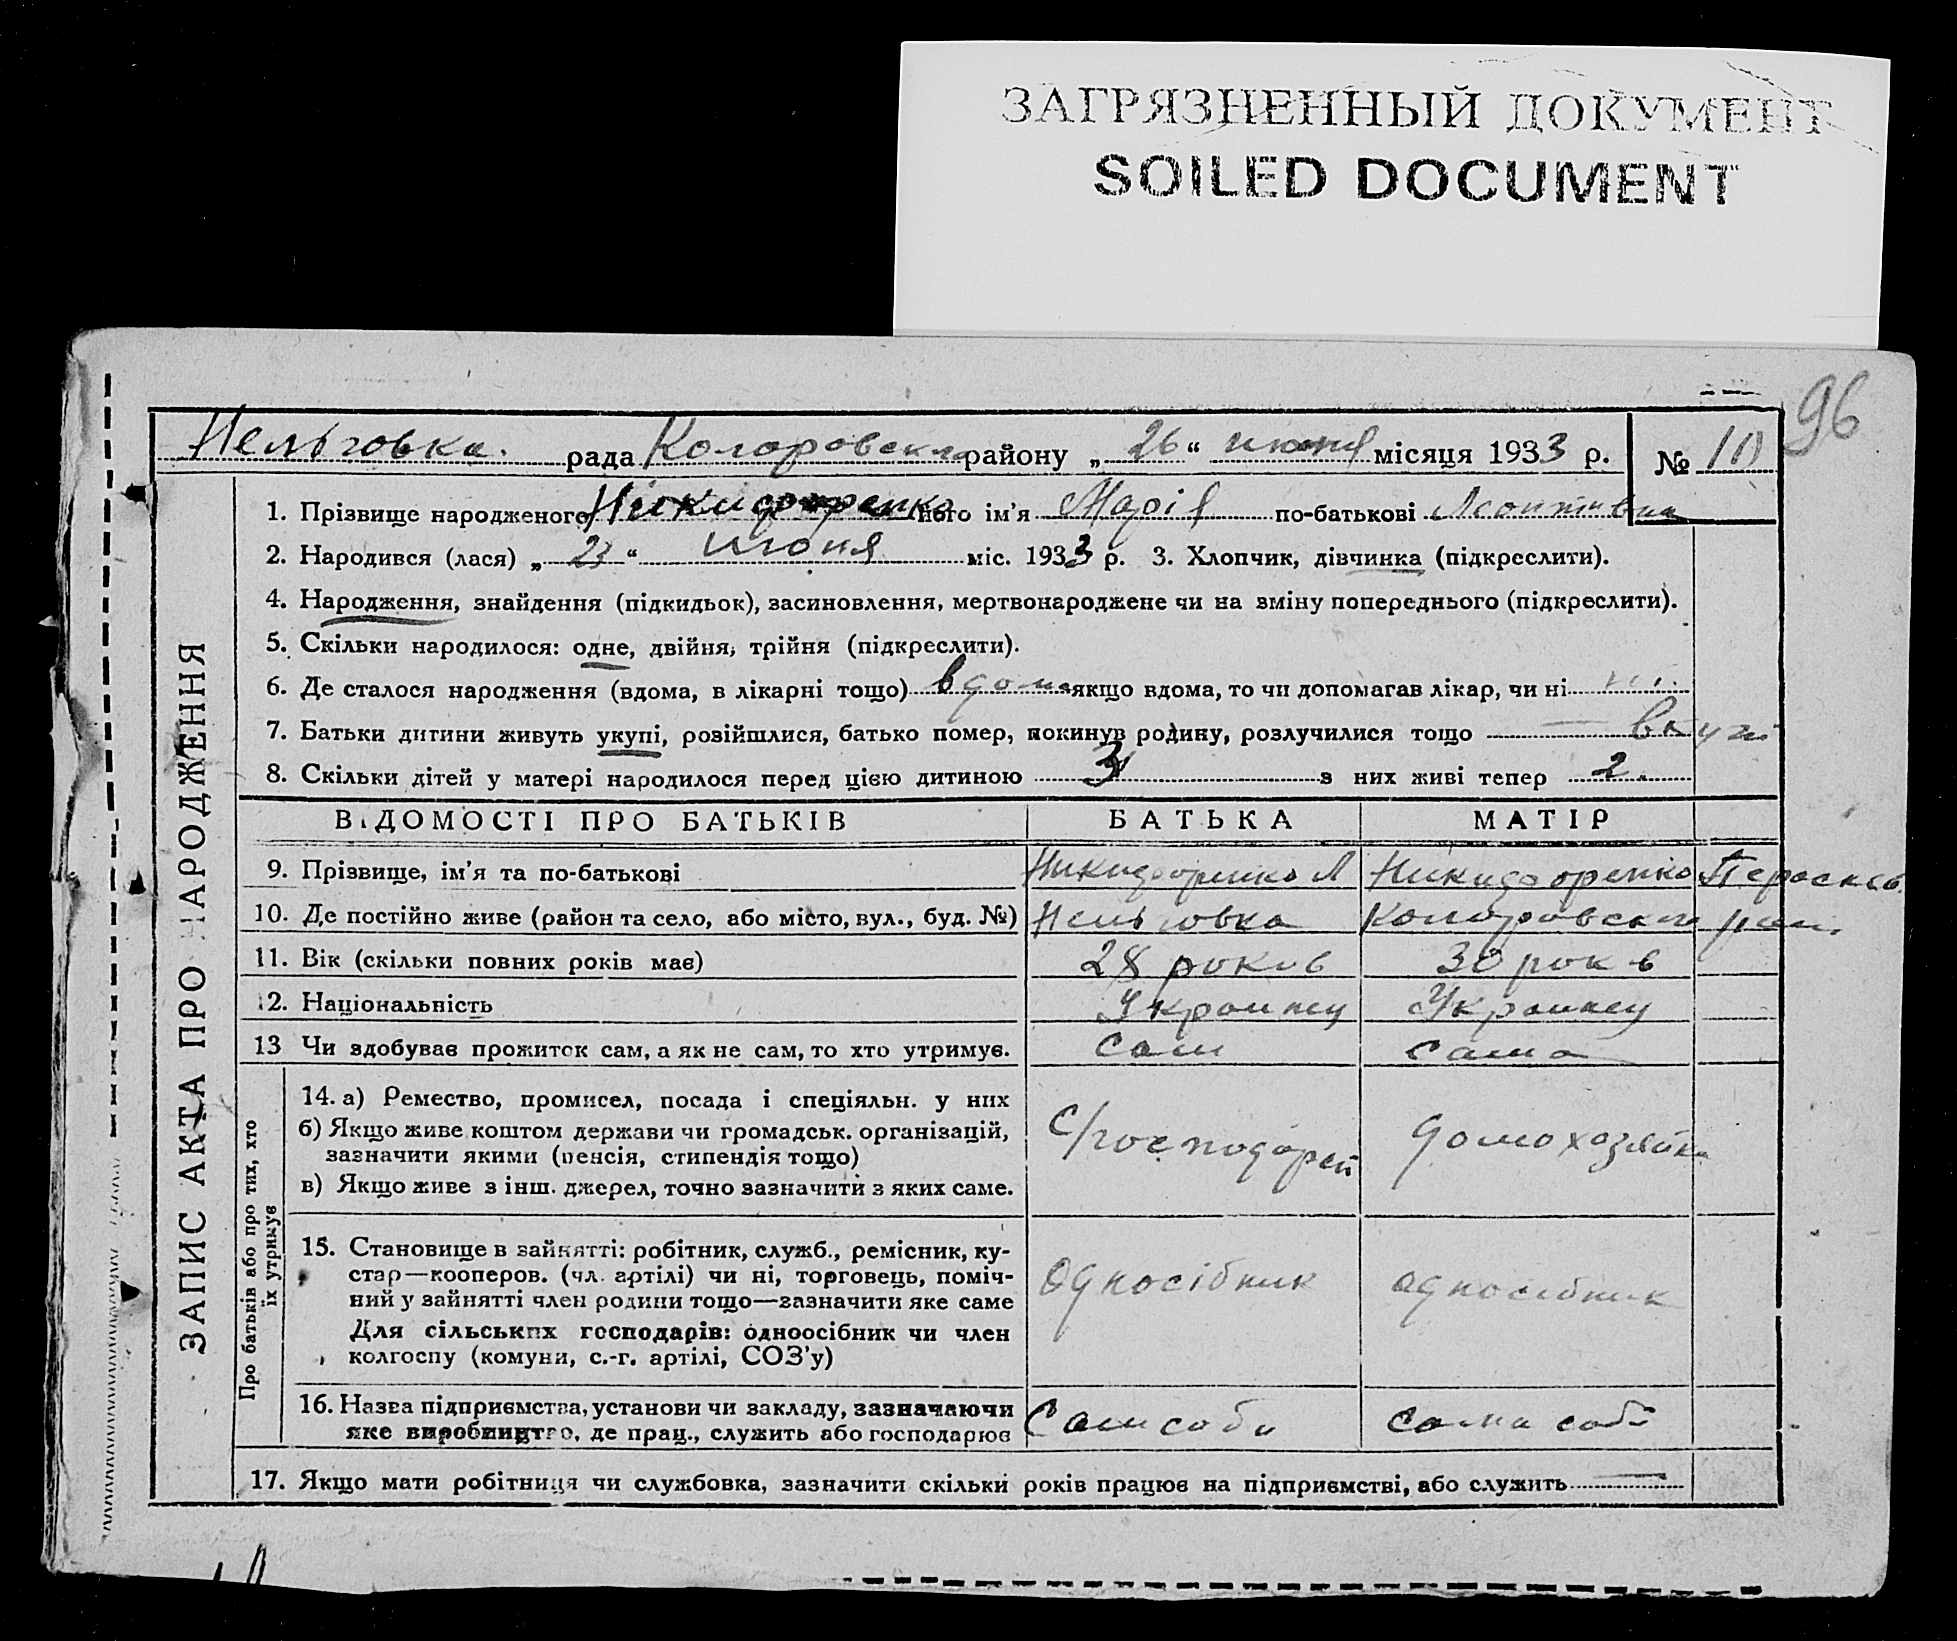 ЗАГРЯЗНЕННЫЙ ДОКУМЕНТ
SOILED DOCUMENT
96
Нельговка. рада Коларовского району „26“ июня місяця 1933 р. №
ЗАПИС АКТА ПРО НАРОДЖЕННЯ
1. Прізвище народженого Никидоренко його ім’я Марія по-батькові Леонтівна
2. Народився (лася) „23“ июня міс. 1933 р. 3. Хлопчик, дівчинка (підкреслити).
4. Народження, знайдення (підкидьок), засиновлення, мертвонароджене чи на зміну попереднього (підкреслити).
5. Скільки народилося: одне, двійня, трійня (підкреслити).
6. Де сталося народження (вдома, в лікарні тощо) вдома якщо вдома, то чи допомагав лікар, чи ні ні.
7. Батьки дитини живуть укупі, розійшлися, батько помер, покинув родину, розлучилися тощо — вкупі
8. Скільки дітей у матері народилося перед цією дитиною 3 з них живі тепер 2.
ВІДОМОСТІ ПРО БАТЬКІВ БАТЬКА МАТІР
9. Прізвище, ім’я та по-батькові Никидоренко Л Никидоренко
10. Де постійно живе (район та село, або місто, вул., буд. №) Нельговка Коларовского рай.
11. Вік (скільки повних років має) 28 роков 30 рок в
12. Національність Украинец Украинец
13 Чи здобуває прожиток сам, а як не сам, то хто утримує. Сам сама
Про батьків або про тих, хто їх утримує
14. а) Ремество, промисел, посада і спеціяльн. у них
б) Якщо живе коштом держави чи громадськ. організацій,
зазначити якими (пенсія, стипендія тощо)
в) Якщо живе з інш. джерел, точно зазначити з яких саме.
С/господарей домохозяйка
15. Становище в зайнятті: робітник, служб., ремісник, ку-
стар—кооперов. (чл. артілі) чи ні, торговець, поміч-
ний у зайнятті член родини тощо—зазначити яке саме
Для сільських господарів: одноосібник чи член
колгоспу (комуни, с.-г. артілі, СОЗ’у)
Односібник односибник
16. Назва підприємства, установи чи закладу, зазначаючи
яке виробництво, де прац., служить або господарює
Сам соби сама собі
17. Якщо мати робітниця чи службовка, зазначити скільки років працює на підприємстві, або служить —